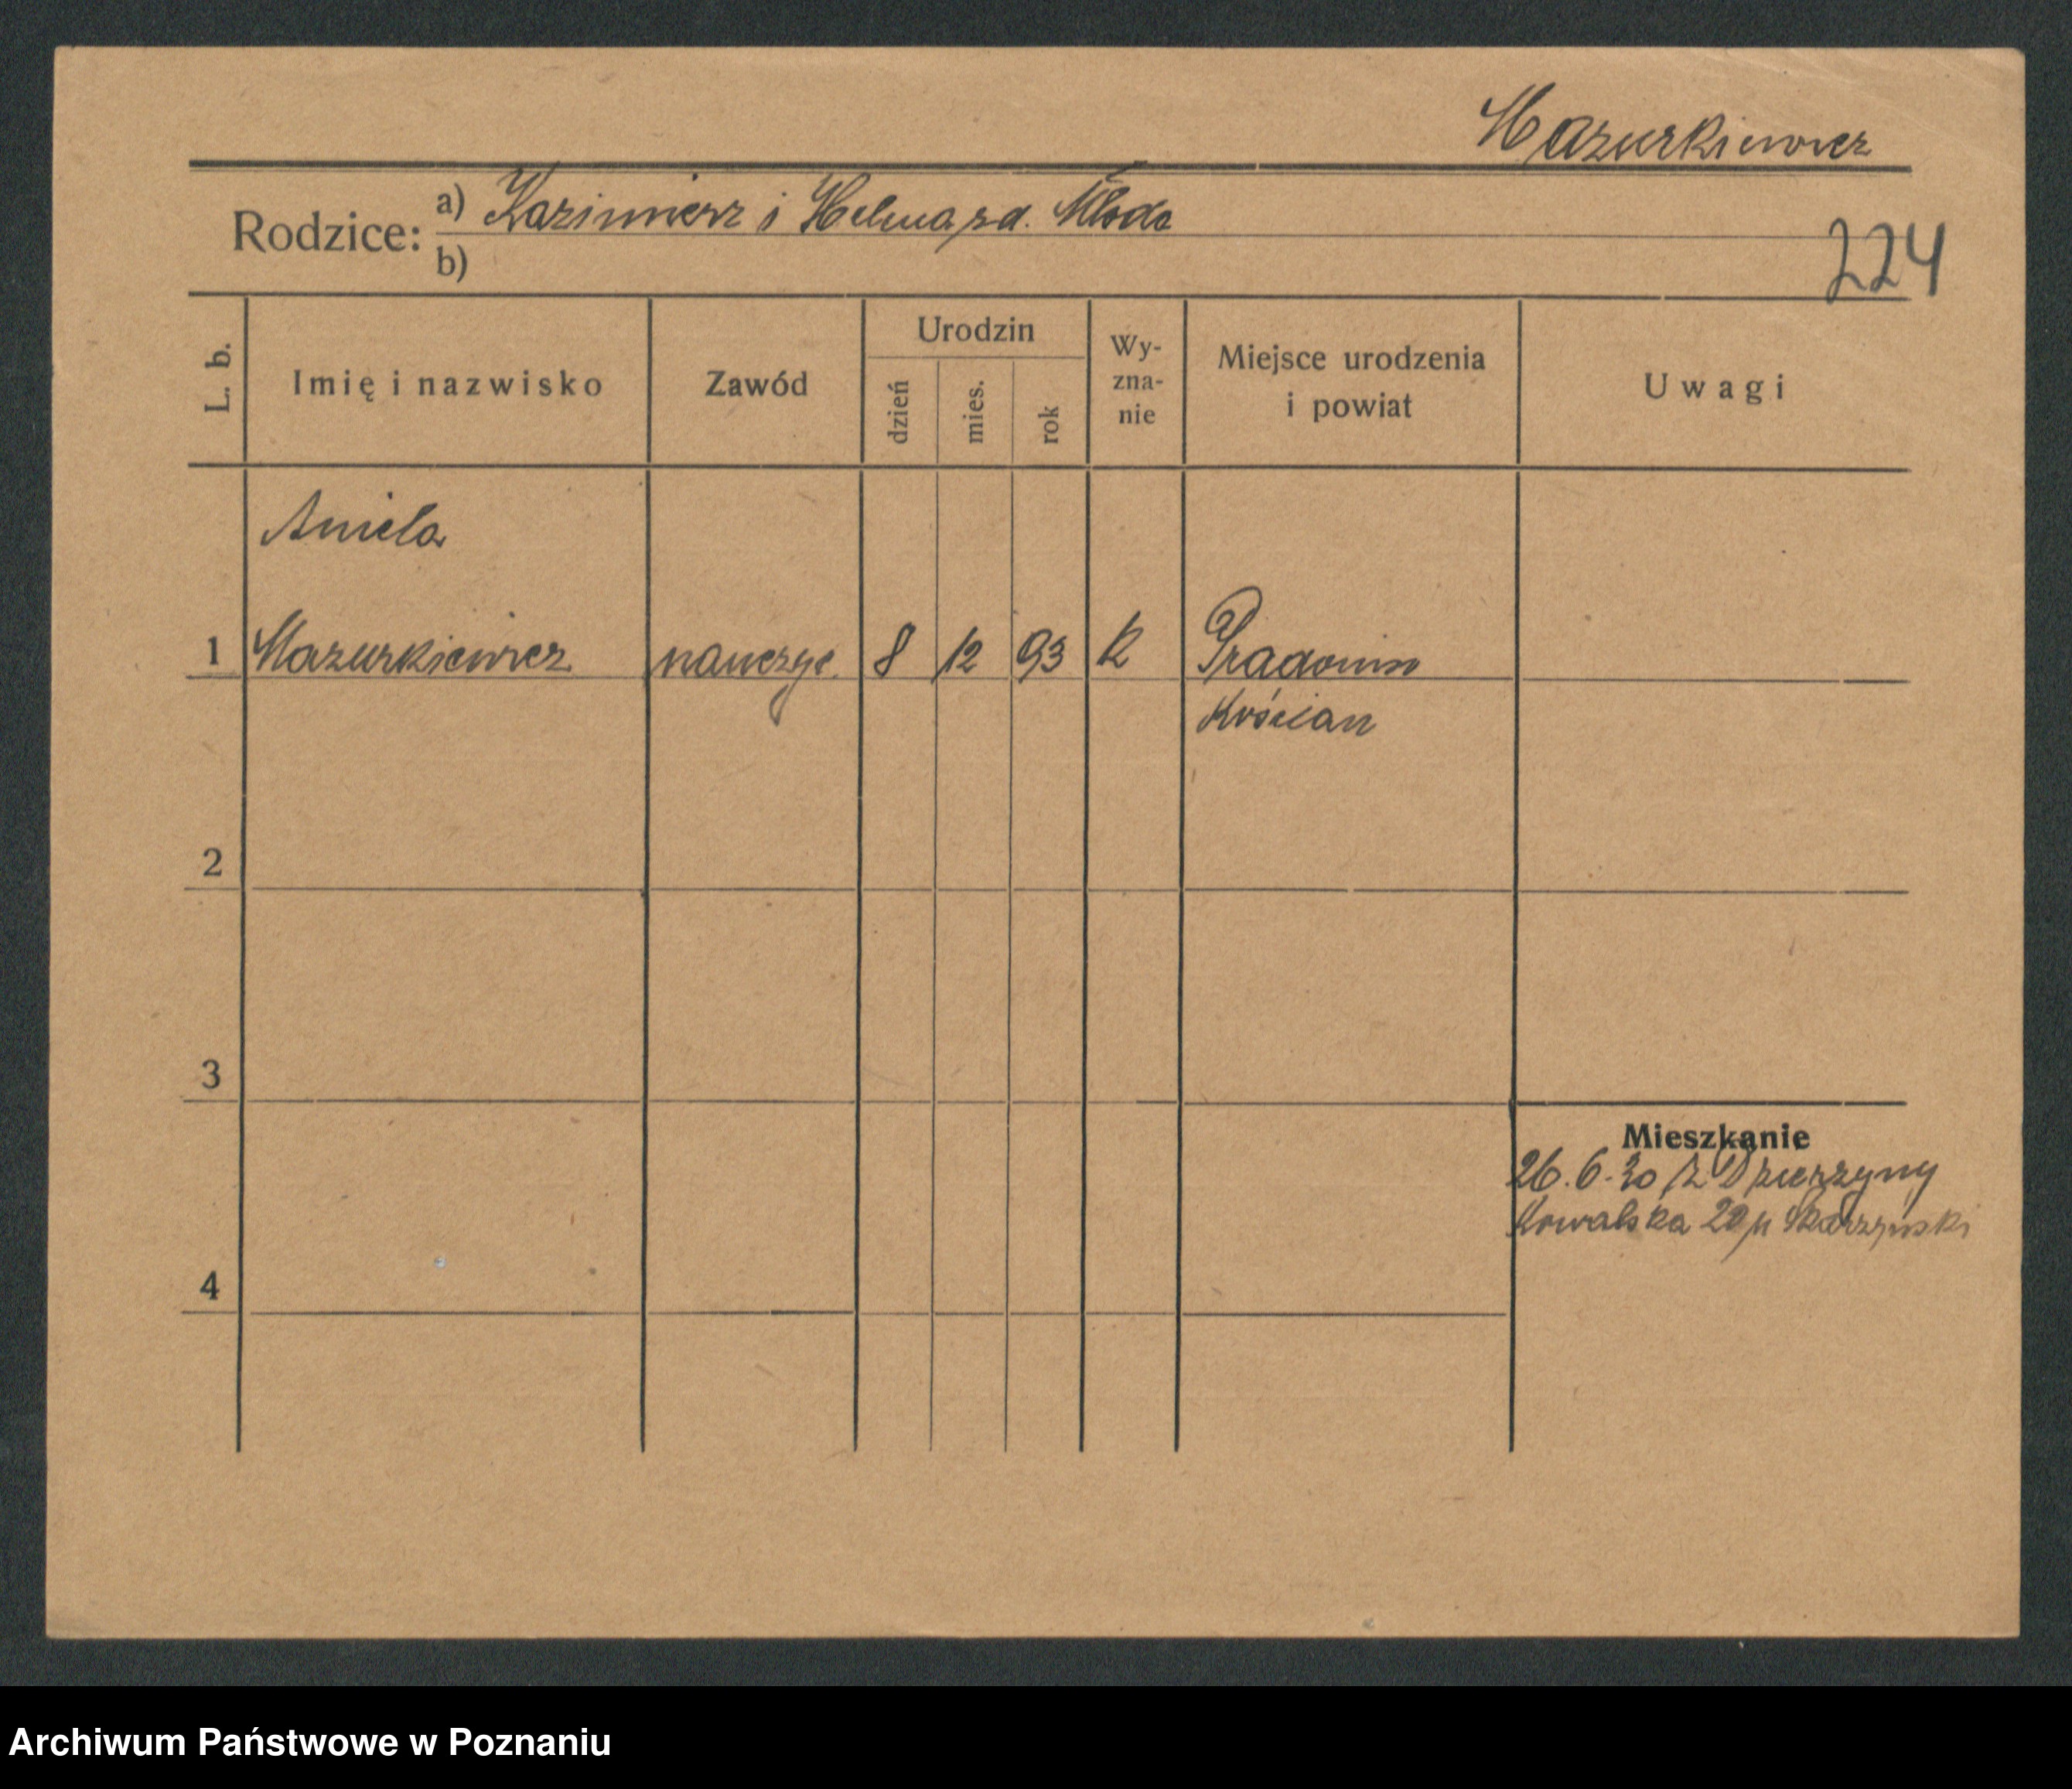 Mazurkiewicz
Rodzice: a) Kazimierz i Helena z d. Młoda
b)
224
L. b. Imię i nazwisko Zawód Urodzin dzień mies. rok Wy-zna-nie Miejsce urodzenia i powiat Uwagi
Aniela
1 Mazurkiewicz nauczyc. 8 12 93 K
Kościan
2
3
4
Mieszkanie
26.6.30 z
Kowalska 20 Skarzyński
Archiwum Państwowe w Poznaniu